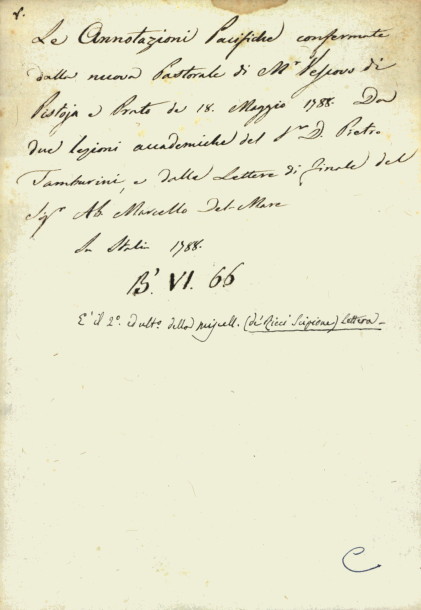 Le Annotazioni Pacifiche confermate
dalla nuova Pastorale di Mr Vescovo di
Pistoja e Prato de 18. Maggio 1788. Da
due lezioni accademiche del Sr D. Pietro
Tamburini, e dalle Lettere di finale del
Sigr Ab Marcello Del-Mare
In Italia 1788.
B'. VI. 66
E' il 2º. ed ultº. della miscell. (de' Ricci Scipione) Lettera
C